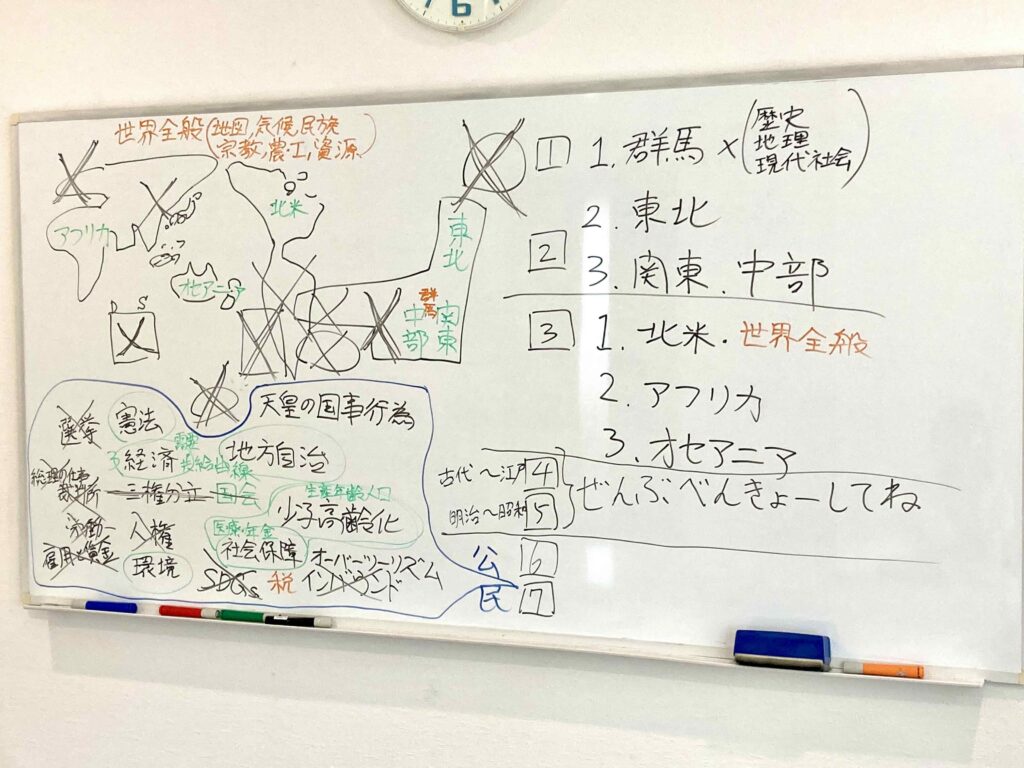 6
世界全般(地図,気候,民族
宗教,農工,資源)
アフリカ
北米
オセアニア
P S
東北
群馬
中部
関東
天皇の国事行為
選挙
憲法
経済
地方自治
総理の仕事
裁判所
三権分立
国会
生産年齢人口
少子高齢化
労働
雇用と賃金
人権
医療・年金
社会保障
オーバーツーリズム
環境
SDGs
税
インバウンド
1 1. 群馬 × (歴史
地理
現代社会)
2. 東北
2
3. 関東.中部
3 1. 北米・世界全般
2. アフリカ
3. オセアニア
古代〜江戸 4
明治〜昭和 5
ぜんぶべんきょーしてね
公 6
民 7